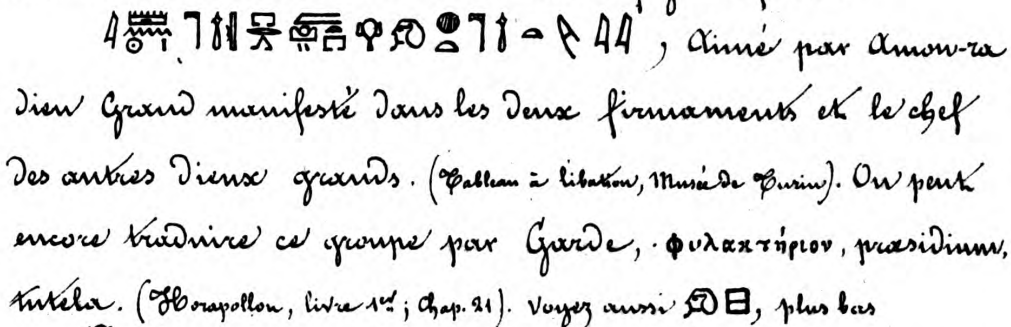 , Aimé par Amon-ra
Dieu Grand manifesté Dans les Deux firmaments et le chef
Des autres Dieux grands. (Tableau à libation, Musée De Turin). On peut
encore traduire ce groupe par Garde, φυλακτήριον, præsidium,
tutela. (Horapollon, livre 1er; Chap. 21). Voyez aussi, plus bas